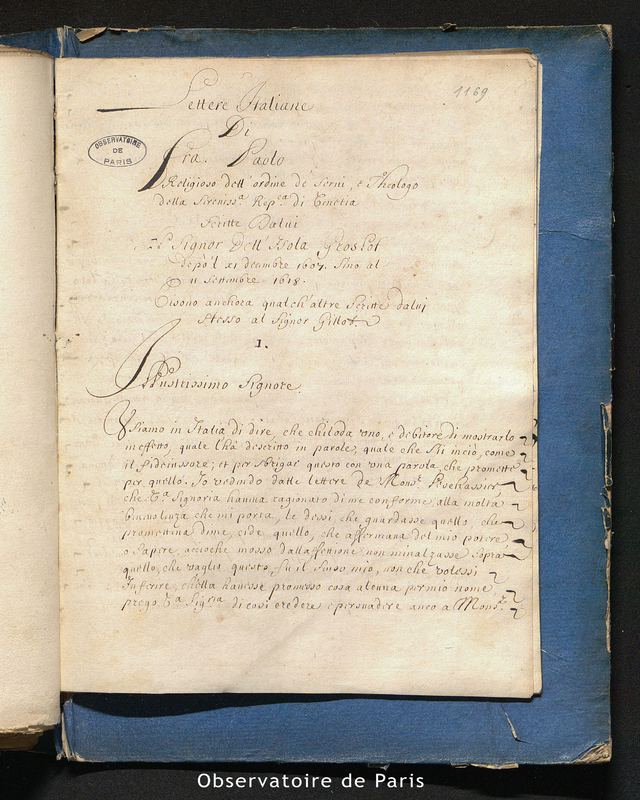 1169
Lettere Italiane
Di
Fra. Paolo
OBSERVATOIRE
DE
PARIS
Religioso dell' ordine de Servi, e Theologo
della Sereniss.a Rep.ca di Venetia
scritte Dalui
Il Signor Dell' Isola Groslot
dopo'l xi decembre 1607. sino al
11 settembre 1618.
Visono anchora qualch' altre scritte dalui
stesso al signor Gillot.
1.
Illustrissimo Signore.
Usiamo in Italia di dire, che chi loda uno, e debitore di mostrarlo
in effetto, quale l'ha descritto in parole; quale che sii in ciò, come
il fideiussore; et per sbrigar questo con una parola, che promette
per quello. Io vedendo dalle lettere de Mons.r
che V.a Signoria hauua ragionato di me conforme alla molta
che mi porta, le dessi che guardasse quello, che
prometteua di me, cide quello, che affermaua del mio potere
o sapere, accioche mosso dall affettione non minalzasse sopra
quello che vaglio questo, fu il senso mio, non che volessi
Inferire, ch'ella hauesse promesso cosa alcuna per mio nome
prego V.a Sig.ria di cosi credere e persuadere anco a Mons.r